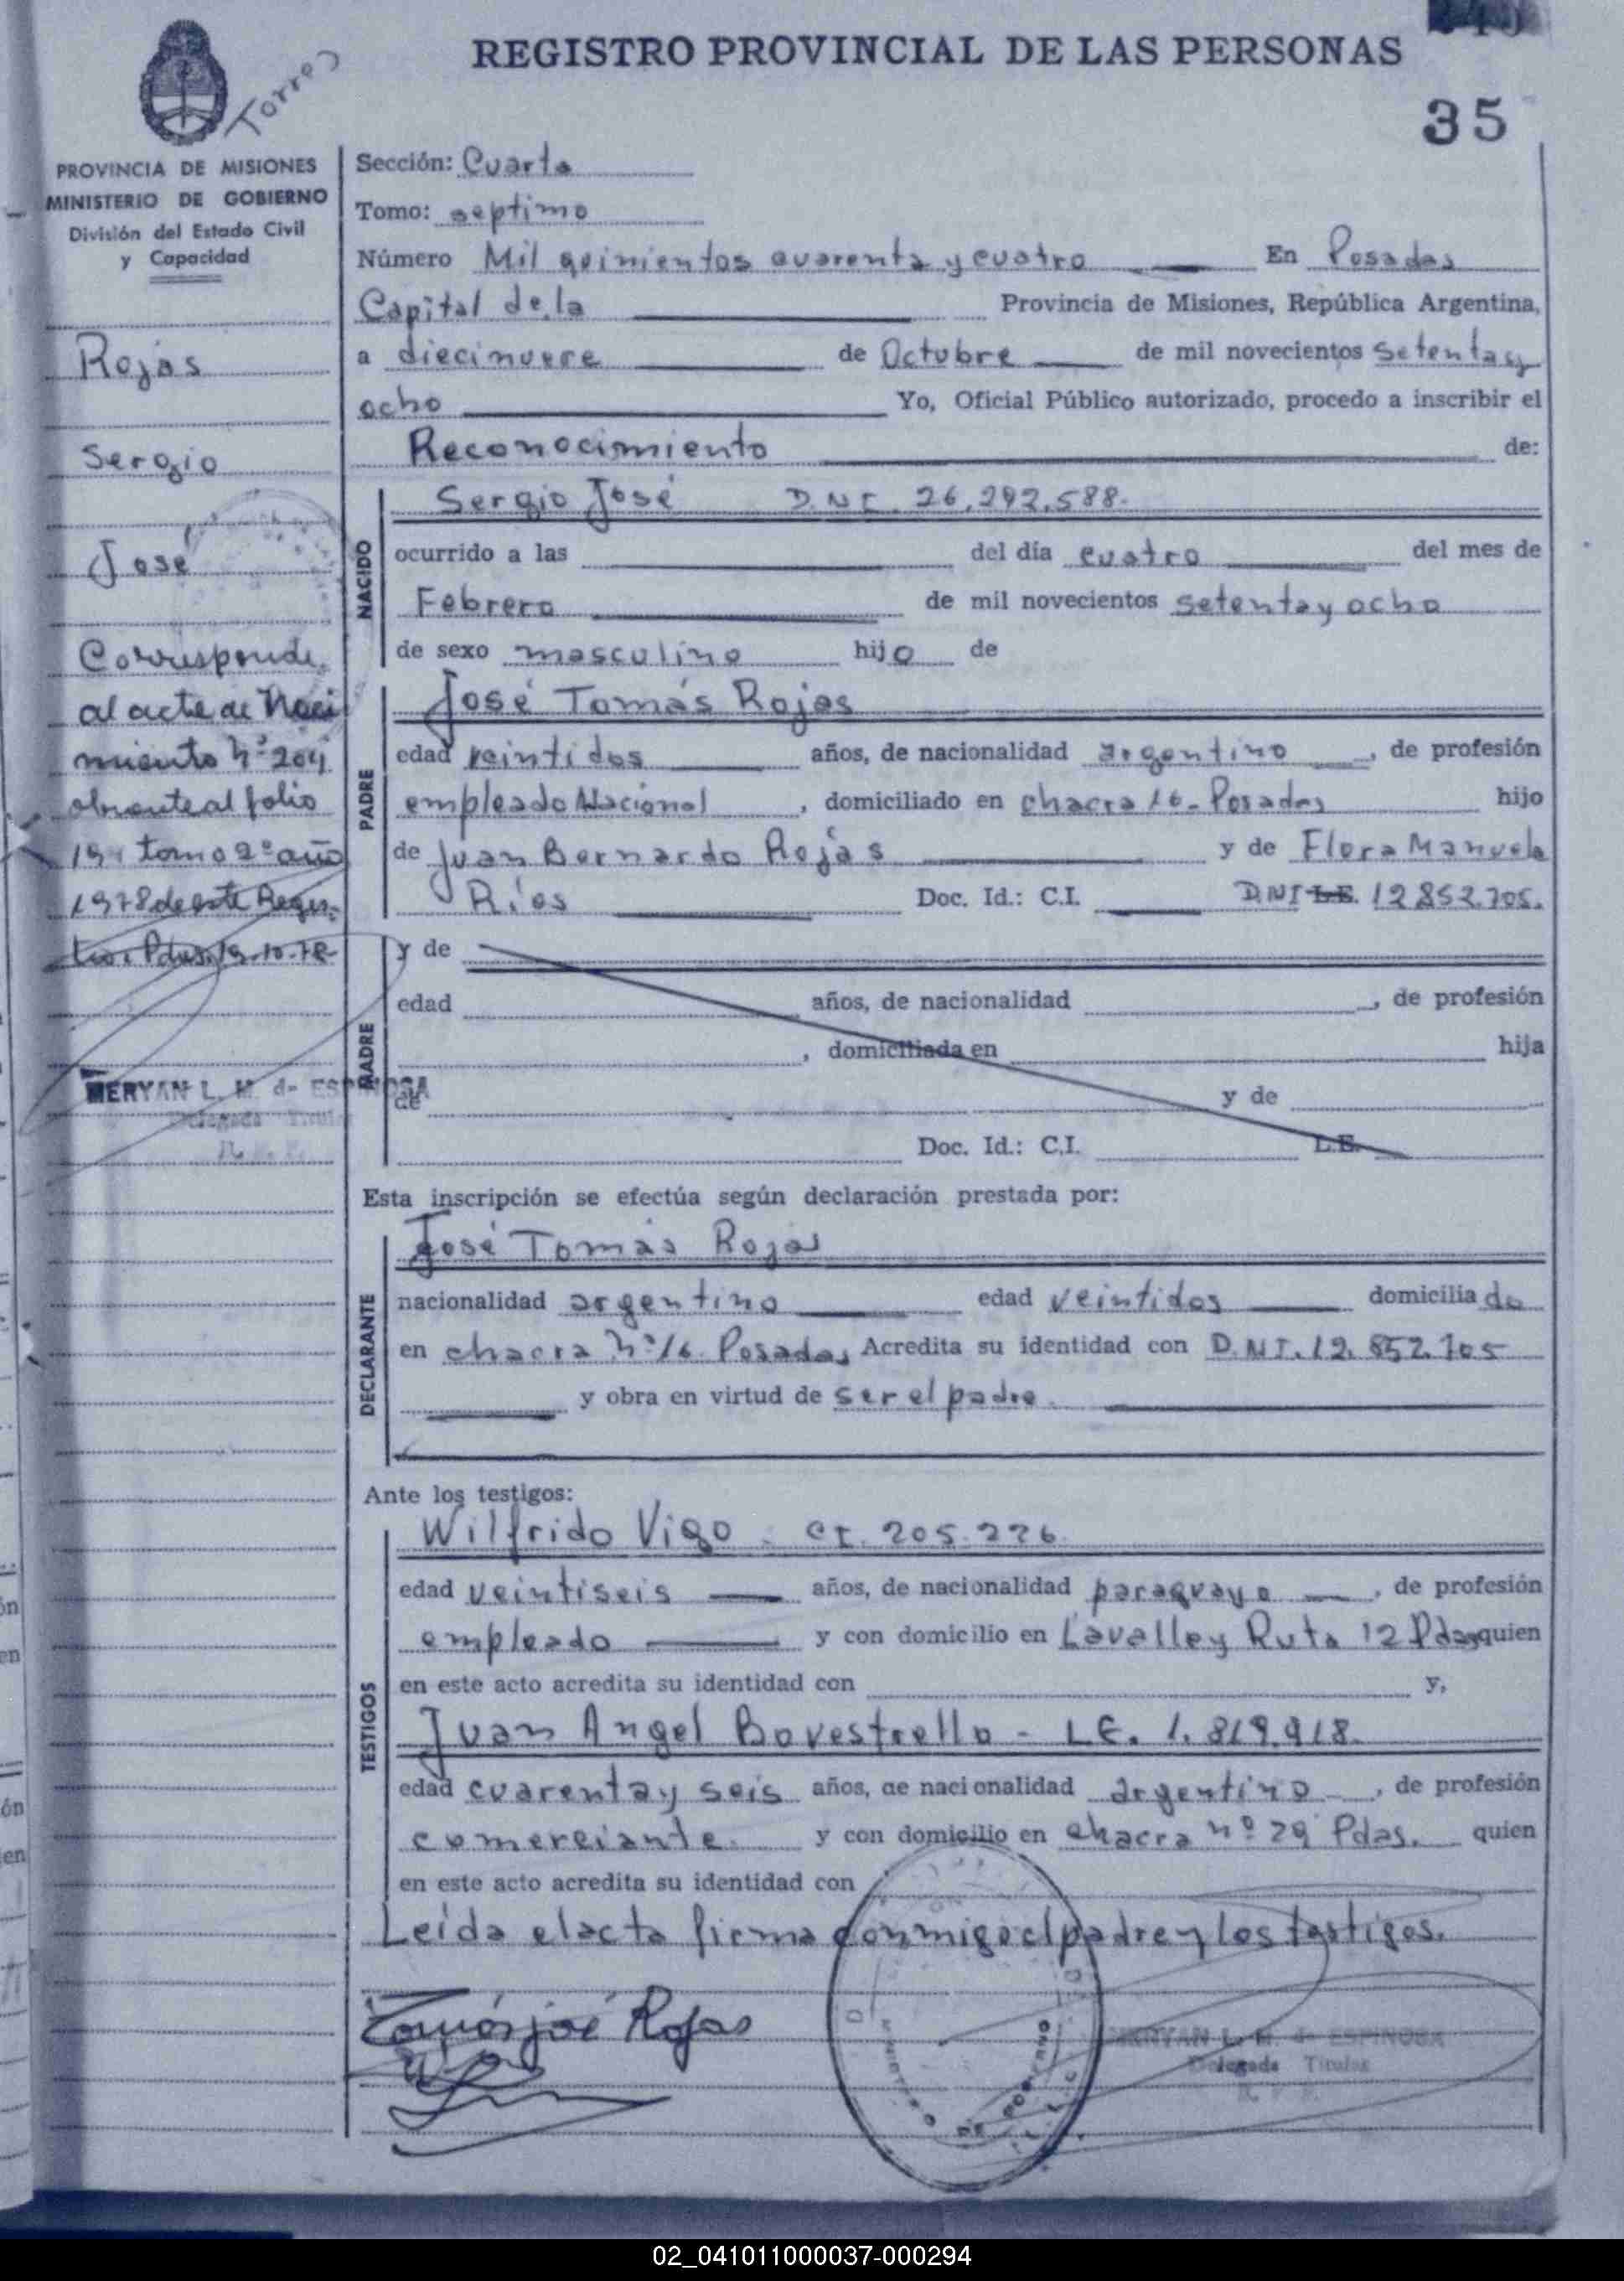 REGISTRO PROVINCIAL DE LAS PERSONAS
35
Torres
PROVINCIA DE MISIONES
MINISTERIO DE GOBIERNO
División del Estado Civil
y Capacidad
Rojas
Sergio
José
Corresponde
al acta de Naci
miento nº 204
obrante al folio
194 tomo 2º año
1978 de este Regis-
tro. Pdas. 19-10-78
MERYAN L. M. de ESPINOSA
Delegada Titular
Sección: Cuarta
Tomo: septimo
Número Mil quinientos cuarenta y cuatro En Posadas
Capital de la Provincia de Misiones, República Argentina,
a diecinueve de Octubre de mil novecientos setenta y
ocho Yo, Oficial Público autorizado, procedo a inscribir el
Reconocimiento de:
NACIDO
Sergio José D.N.I. 26.292.588.
ocurrido a las del día cuatro del mes de
Febrero de mil novecientos setenta y ocho
de sexo masculino hijo de
PADRE
José Tomás Rojas
edad veintidos años, de nacionalidad argentino, de profesión
empleado Nacional, domiciliado en chacra 16-Posadas hijo
de Juan Bernardo Rojas y de Flora Manuela
Ríos Doc. Id.: C.I. DNI L.E. 12.852.705.
MADRE
y de
edad años, de nacionalidad , de profesión
, domiciliada en hija
de y de
Doc. Id.: C.I. L.E.
Esta inscripción se efectúa según declaración prestada por:
DECLARANTE
José Tomás Rojas
nacionalidad argentino edad veintidos domiciliado
en chacra nº 16. Posadas Acredita su identidad con D.N.I. 12.852.705
y obra en virtud de ser el padre.
Ante los testigos:
TESTIGOS
Wilfrido Vigo - CI. 205.226.
edad veintiseis años, de nacionalidad paraguayo, de profesión
empleado y con domicilio en Lavalle y Ruta 12 Pdas, quien
en este acto acredita su identidad con y,
Juan Angel Bovestrello - LE. 1.819.918.
edad cuarenta y seis años, de nacionalidad argentino, de profesión
comerciante. y con domicilio en chacra nº 29 Pdas. quien
en este acto acredita su identidad con
Leída el acta firma conmigo el padre y los testigos.
Tomás José Rojas
MERYAN L. M. de ESPINOSA
Delegada Titular
02_041011000037-000294